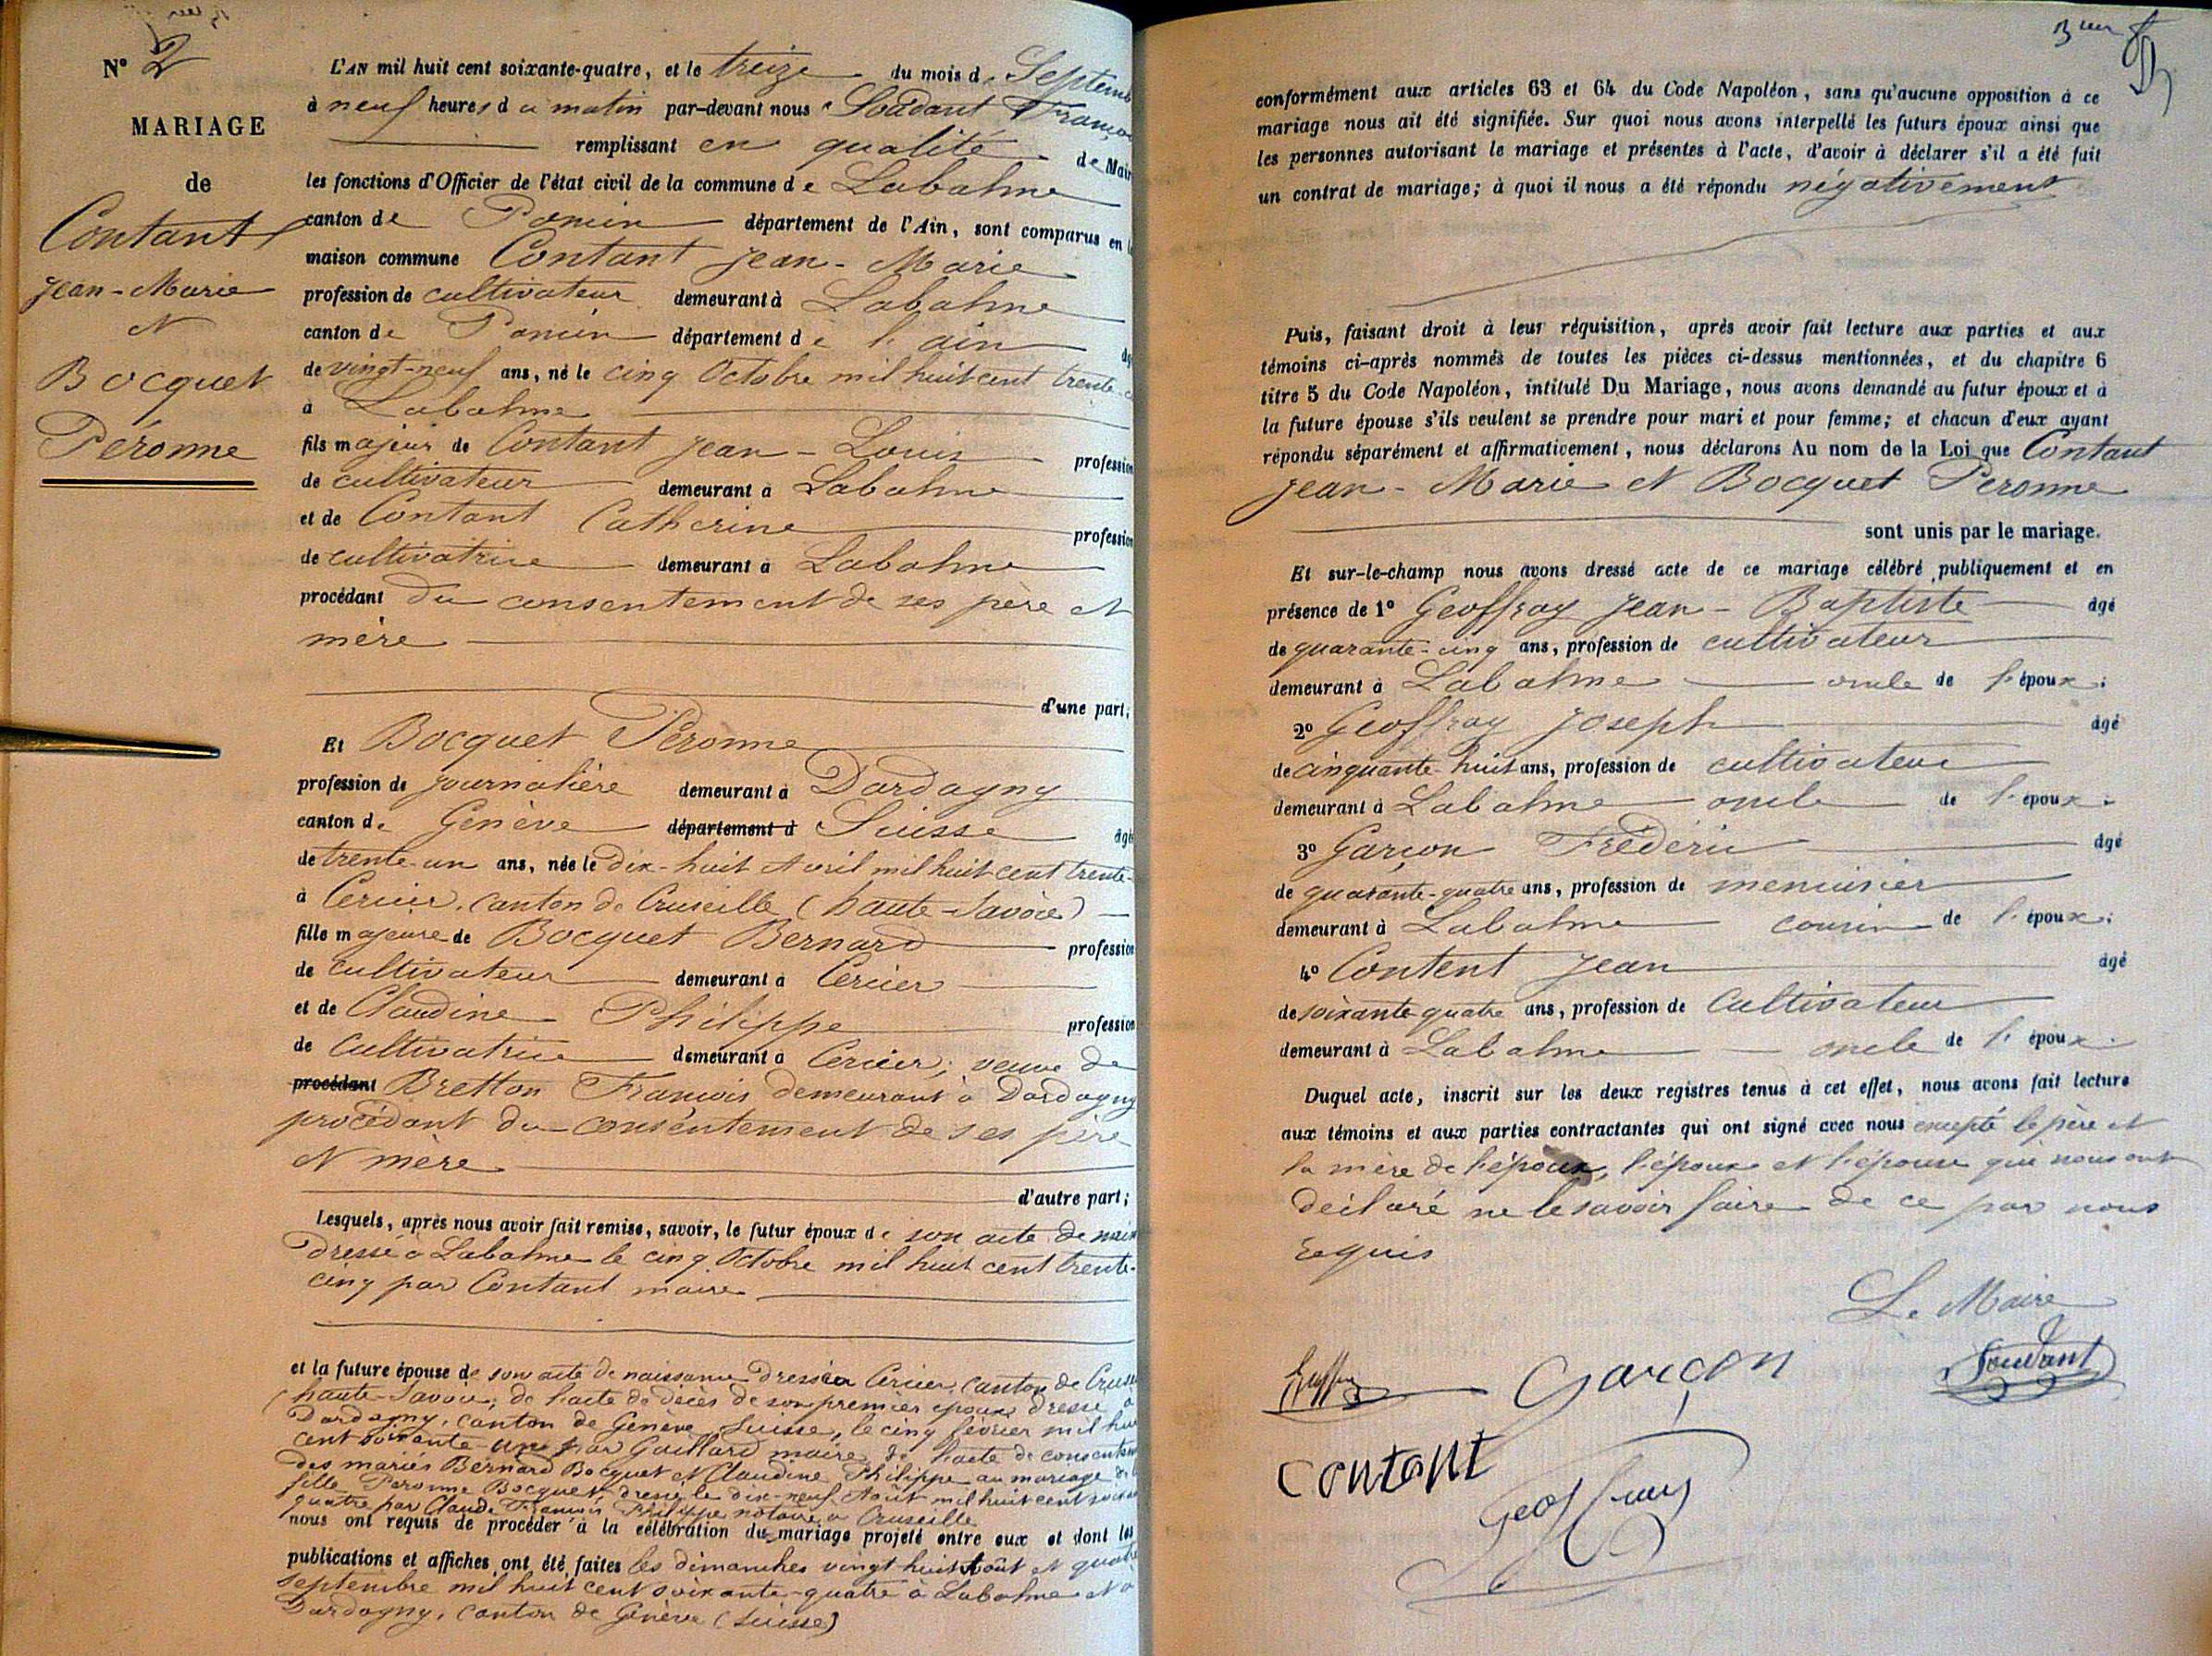 N° 2
MARIAGE
de
Contant
Jean-Marie
et
Bocquet
Péronne
L'AN mil huit cent soixante-quatre, et le treize du mois de Septemb
à neuf heures du matin par-devant nous Soudant Franço
remplissant en qualité de Mair
les fonctions d'Officier de l'état civil de la commune de Labalme
canton de Poncin département de l'Ain, sont comparus en l
maison commune Contant Jean-Marie
profession de cultivateur demeurant à Labalme
canton de Poncin département de l'ain âg
de vingt-neuf ans, né le cinq Octobre mil huit cent trente-c
à Labalme
fils majeur de Contant Jean-Louis profession
de cultivateur demeurant à Labalme
et de Contant Catherine profession
de cultivatrice demeurant à Labalme
procédant du consentement de ses père et
mère
d'une part;
Et Bocquet Péronne
profession de journalière demeurant à Dardagny
canton de Genève département d Suisse âgé
de trente-un ans, née le dix-huit Avril mil huit cent trente-
à Cercier, canton de Cruseille (haute-Savoie)
fille majeure de Bocquet Bernard profession
de cultivateur demeurant à Cercier
et de Claudine Philippe profession
de cultivatrice demeurant à Cercier; veuve de
procédant Bretton François demeurant à Dardagny
procédant du consentement de ses père
et mère
d'autre part;
Lesquels, après nous avoir fait remise, savoir, le futur époux de son acte de naiss
dressé à Labalme le cinq Octobre mil huit cent trente-
cinq par Contant maire
et la future épouse de son acte de naissance dressé à Cercier, canton de Cruse
(haute-Savoie; de l'acte de décès de son premier époux dressé à
Dardagny, canton de Genève, Suisse, le cinq février mil hui
cent soixante-une par Gaillard maire; de l'acte de consentem
des mariés Bernard Bocquet et Claudine Philippe au mariage de l
fille Péronne Bocquet, dressé le dix-neuf Août mil huit cent soixan
quatre par Claude François Philippe notaire à Cruseille
nous ont requis de procéder à la célébration du mariage projeté entre eux et dont les
publications et affiches ont été faites les dimanches vingt-huit Août et quatre
septembre mil huit cent soixante-quatre à Labalme et à
Dardagny, canton de Genève (Suisse)
conformément aux articles 63 et 64 du Code Napoléon, sans qu'aucune opposition à ce
mariage nous ait été signifiée. Sur quoi nous avons interpellé les futurs époux ainsi que
les personnes autorisant le mariage et présentes à l'acte, d'avoir à déclarer s'il a été fait
un contrat de mariage; à quoi il nous a été répondu négativement
Puis, faisant droit à leur réquisition, après avoir fait lecture aux parties et aux
témoins ci-après nommés de toutes les pièces ci-dessus mentionnées, et du chapitre 6
titre 5 du Code Napoléon, intitulé Du Mariage, nous avons demandé au futur époux et à
la future épouse s'ils veulent se prendre pour mari et pour femme; et chacun d'eux ayant
répondu séparément et affirmativement, nous déclarons Au nom de la Loi que Contant
Jean-Marie et Bocquet Péronne
sont unis par le mariage.
Et sur-le-champ nous avons dressé acte de ce mariage célébré publiquement et en
présence de 1° Geoffray Jean-Baptiste âgé
de quarante-cinq ans, profession de cultivateur
demeurant à Labalme oncle de l'époux;
2° Geoffray Joseph âgé
de cinquante-huit ans, profession de cultivateur
demeurant à Labalme oncle de l'époux;
3° Garçon Frédéric âgé
de quarante-quatre ans, profession de menuisier
demeurant à Labalme cousin de l'époux;
4° Content Jean âgé
de soixante quatre ans, profession de Cultivateur
demeurant à Labalme oncle de l'époux.
Duquel acte, inscrit sur les deux registres tenus à cet effet, nous avons fait lecture
aux témoins et aux parties contractantes qui ont signé avec nous excepté le père et
la mère de l'époux, l'époux et l'épouse qui nous ont
déclaré ne le savoir faire de ce par nous
requis
Le Maire
Garçon
Soudant
Contant
Geoffray